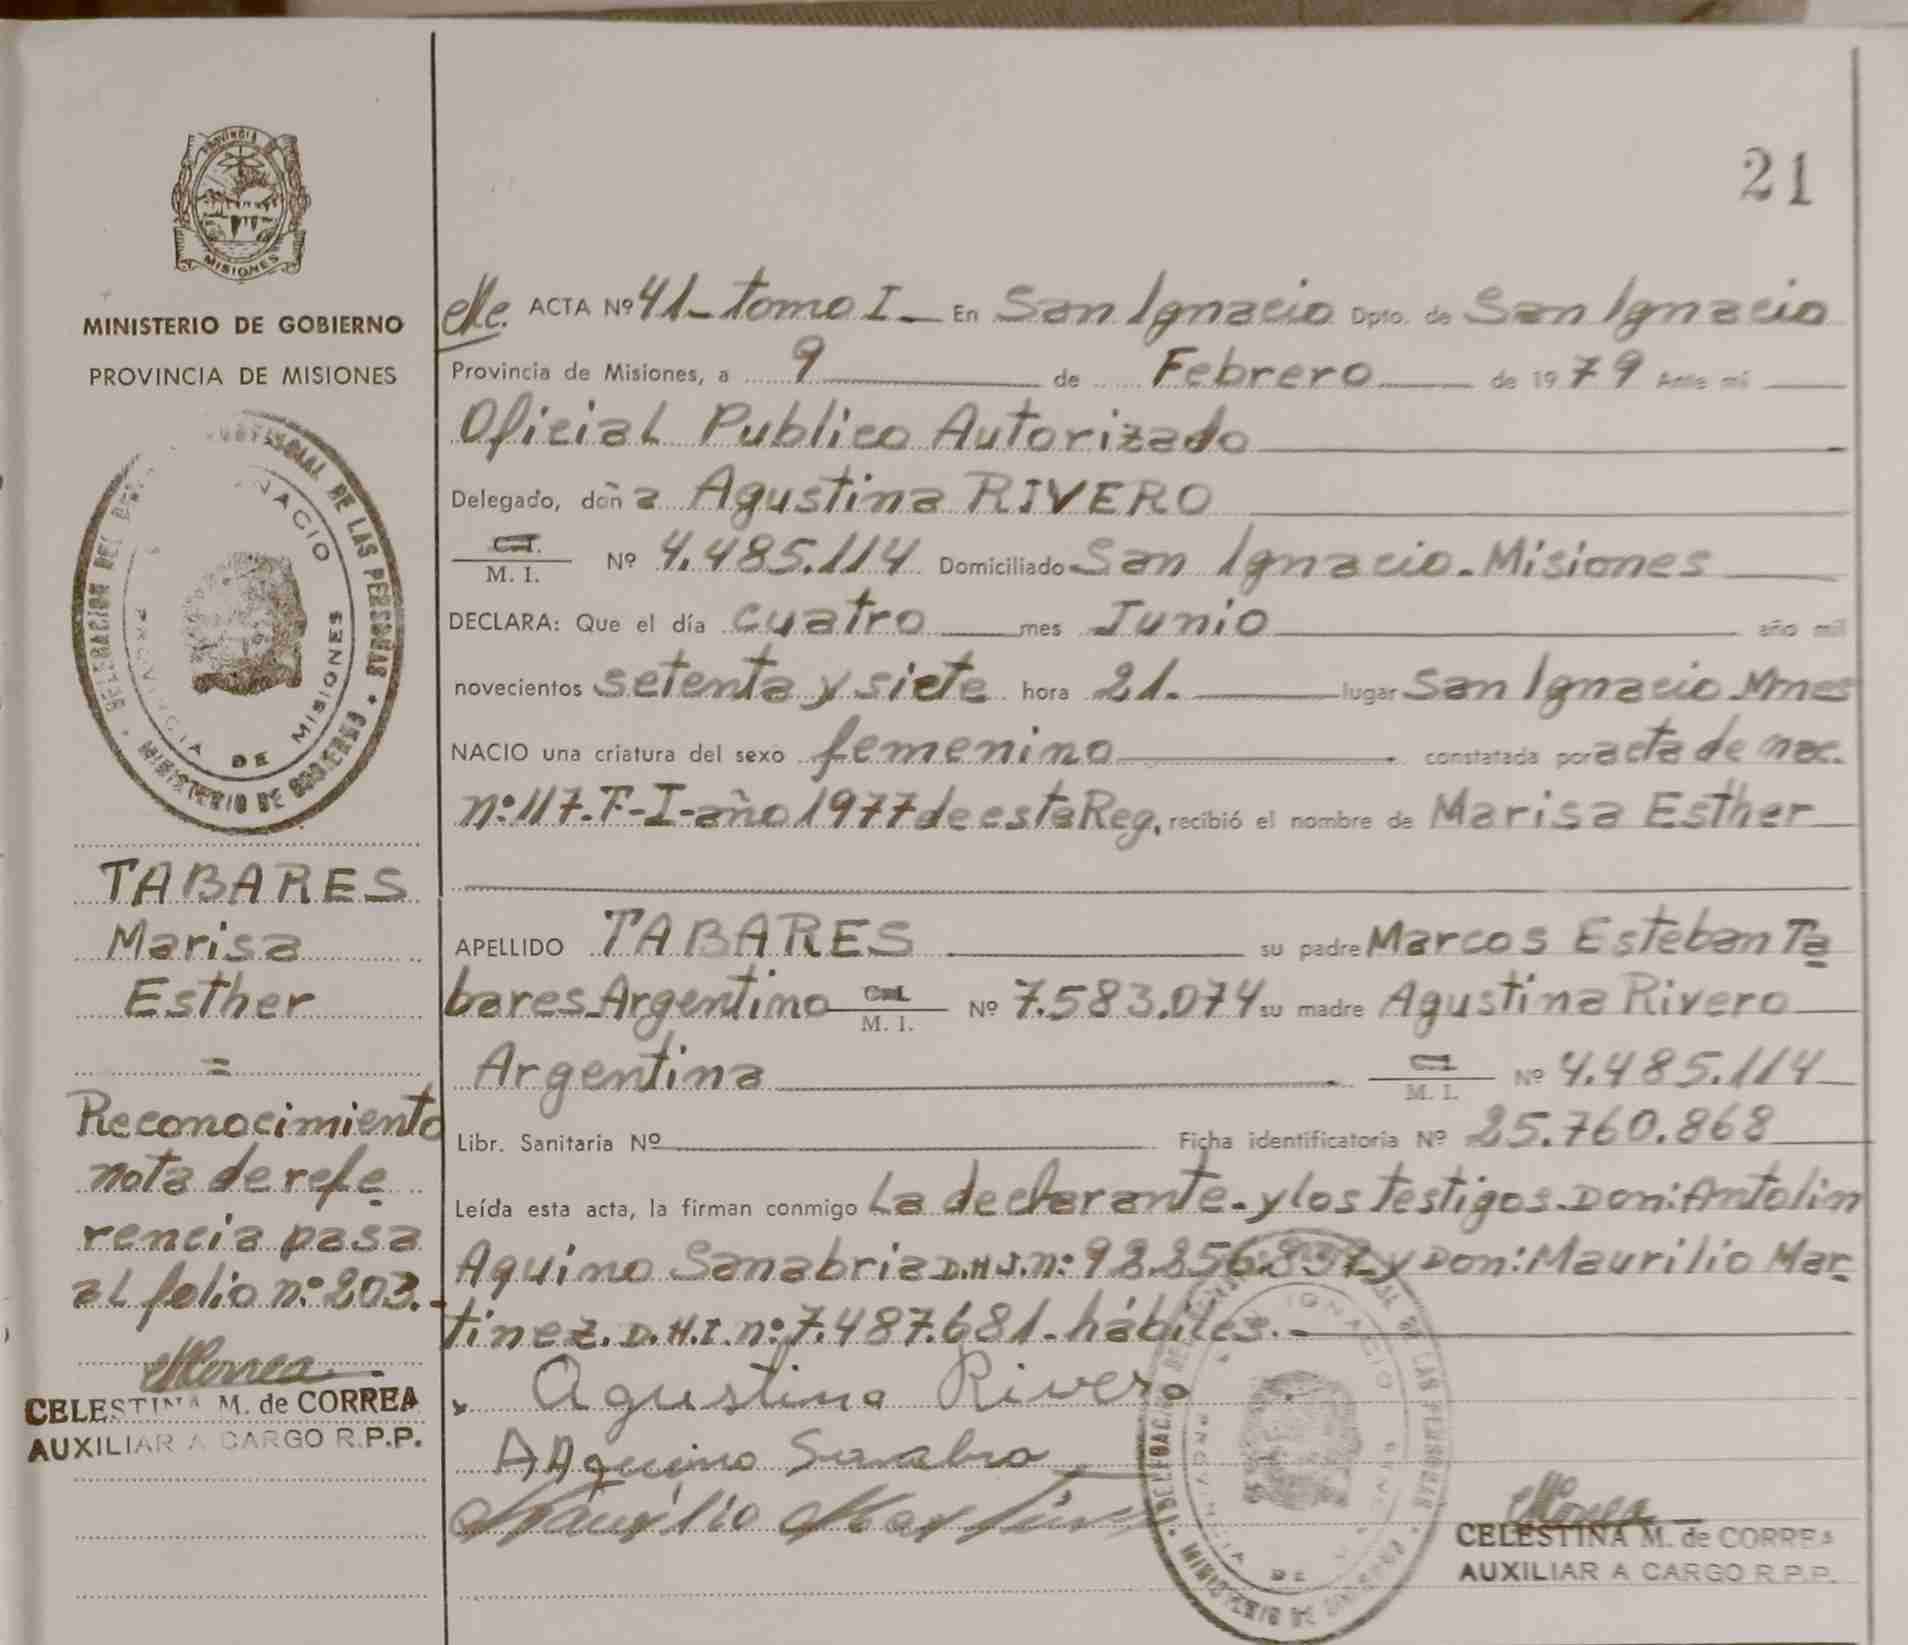 PROVINCIA DE
MISIONES
MINISTERIO DE GOBIERNO
PROVINCIA DE MISIONES
DELEGACION DEL REGISTRO PROVINCIAL DE LAS PERSONAS
MINISTERIO DE GOBIERNO
IGNACIO
PROVINCIA DE MISIONES
TABARES
Marisa
Esther
=
Reconocimiento
nota de refe
rencia pasa
al folio n:º 203.-
CELESTINA M. de CORREA
AUXILIAR A CARGO R.P.P.
21
ACTA Nº 41_ tomo I_ En San Ignacio Dpto. de San Ignacio
Provincia de Misiones, a 9 de Febrero de 1979 Ante mi
Oficial Publico Autorizado
Delegado, doña Agustina RIVERO
C.I. M. I. Nº 4.485.114 Domiciliado San Ignacio_Misiones
DECLARA: Que el día cuatro mes Junio año mil
novecientos setenta y siete hora 21. lugar San Ignacio Mnes
NACIO una criatura del sexo femenino constatada por acta de nac.
n:º 117.T-I-año 1977 de esta Reg, recibió el nombre de Marisa Esther
APELLIDO TABARES su padre Marcos Esteban Ta
bares_Argentino C.I. M. I. Nº 7.583.074 su madre Agustina Rivero
Argentina C.I. M. I. Nº 4.485.114
Libr. Sanitaria Nº Ficha identificatoria Nº 25.760.868
Leída esta acta, la firman conmigo La declarante_y los testigos_Don: Antolin
Aquino Sanabria D.N.I. n:º y Don: Maurilio Mar-
tinez. D.N.I. n:º 7.487.681_hábiles._
Agustina Rivero
A Aquino Sanabria
Maurilio Martinez
DELEGACION DEL DE LAS PERSONAS
MINISTERIO DE GOBIERNO
IGNACIO
PROVINCIA DE
CELESTINA M. de CORREA
AUXILIAR A CARGO R.P.P.